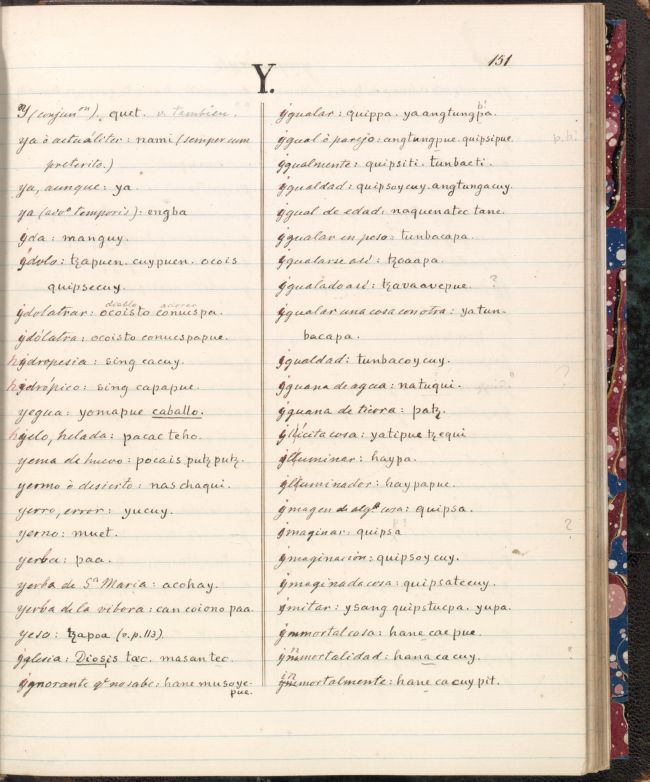 151
Y.
Y (conjun^on). quet. v. tambien.
ya ò actuáliter: nami (semper cum
preterito.)
ya, aunque: ya.
ya (adv^o temporis): engba
ẏda: manguy.
ẏdolo: tʒapuen. cuypuen. ocois
quipsecuy.
diablo adorar
ẏdolatrar: ocoisto conuespa.
ẏdólatra: ocoisto conuespapue.
hydropesia: sing cacuy.
hydrópico: sing capapue.
yegua: yomapue caballo.
hyelo, helada: pacac teho.
yema de huevo: pocais putʒ putʒ.
yermo ò desierto: nas chaqui.
yerro, error: yucuy.
yerno: muet.
yerba: paa.
yerba de S^a Maria: acohay.
yerba de la vibora: can coiono paa.
yeso: tʒapoa (v. p. 113).
ẏglesia: Diosis tæc. masan tec.
ẏgnorante q^e no sabe: hane musoye-
pue.
bi
ẏgualar: quippa. ya angtungpa.
ẏgual ò parejo: angtungpue. quipsipue. p. bi
ẏgualmente: quipsiti. tunbaeti.
ẏgualdad: quipsoycuy. angtungacuy.
ẏgual de edad: naquenatec tane.
ẏgualar en peso: tunbacapa.
ẏgualarse asi: tʒoaapa.
ẏgualado asi: tʒavaavepue. ?
ẏgualar una cosa con otra: ya tun-
bacapa.
ẏgualdad: tunbacoycuy.
ẏguana de agua: natuqui. ?
ẏguana de tierra: patʒ.
ẏlícita cosa: yatipue tʒequi
ẏlluminar: haypa.
ẏlluminador: haypapue.
ẏmagen de alg^a cosa: quipsa.
ẏmaginar: quipsa ?
ẏmaginacion: quipsoycuy.
ẏmaginada cosa: quipsatecuy.
ẏmitar: ysang quipstucpa. yupa.
ẏmmortal cosa: hane cae pue.
ẏmmortalidad: hana ca cuy.
ẏmmortalmente: hane ca cuy pit.